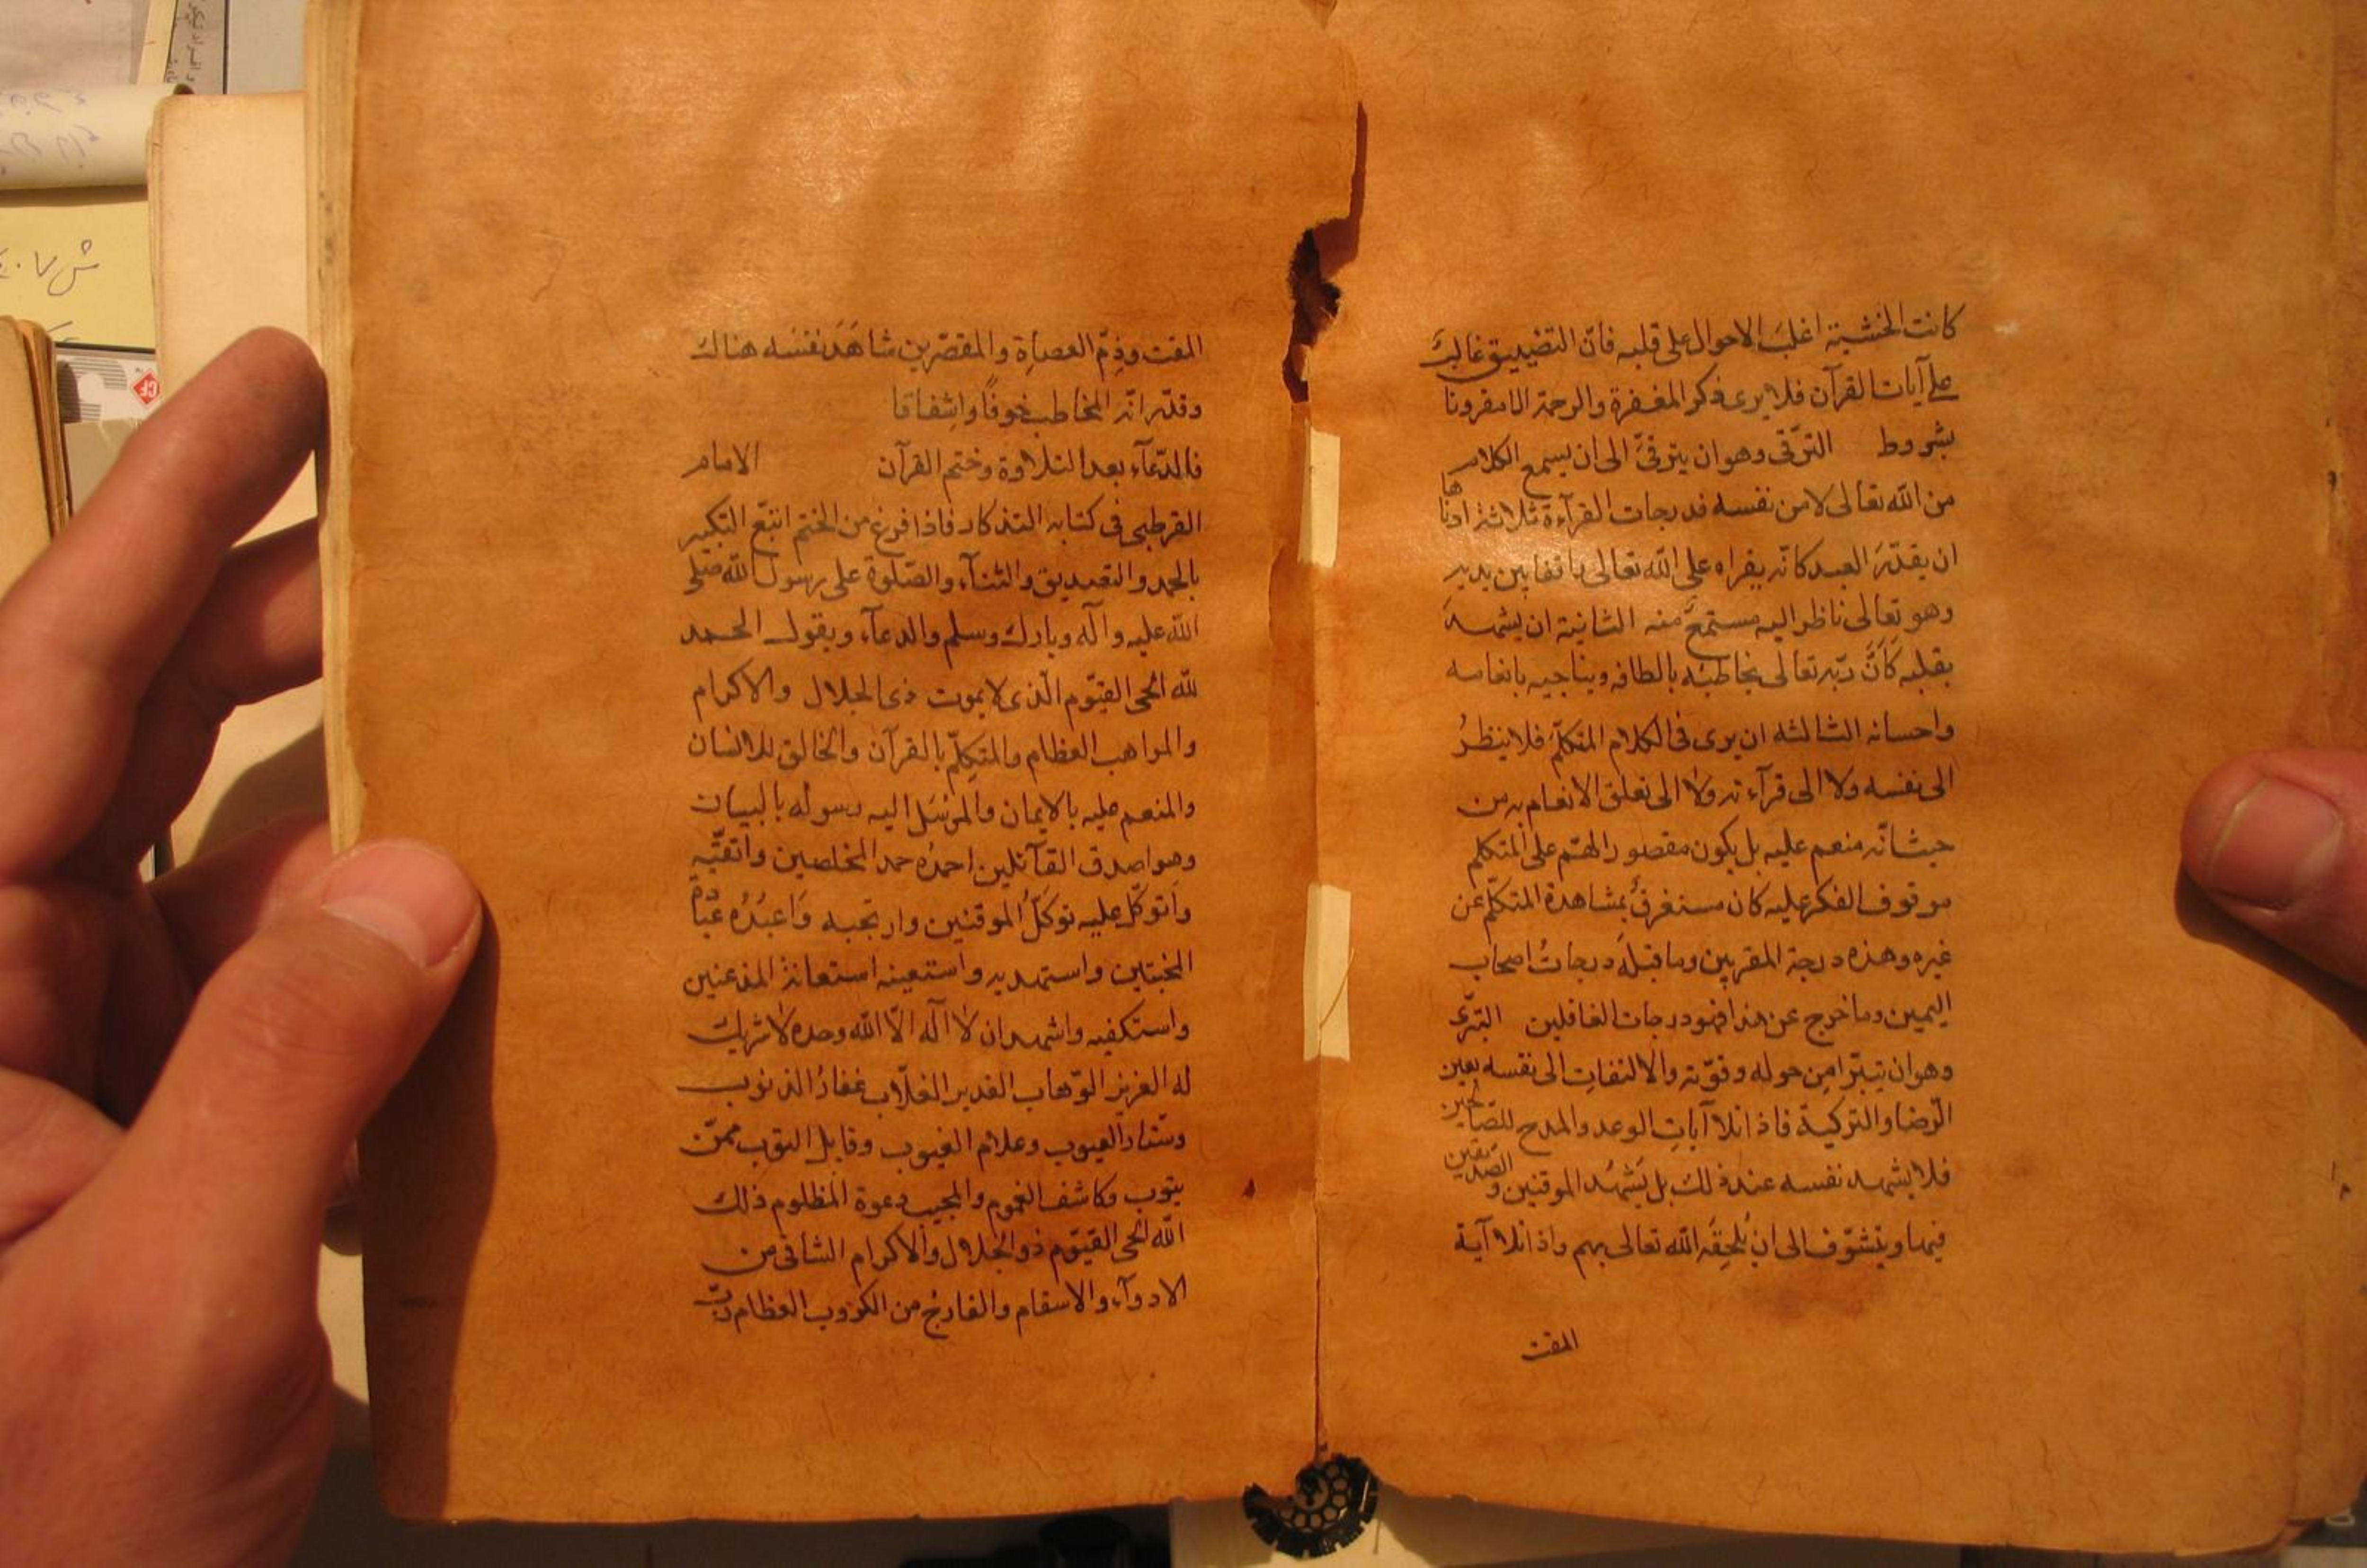 كانت الخشية اغلبَ الاحوال على قلبه فانّ التضييق غالبٌ
على آيات القرآن فلا يرى ذكر المغفرة والرحمة الا مقرونا
بشروط الترّقى وهو ان يترقىَّ الى ان يسمع الكلام
من الله تعالى لا من نفسه فدرجات القرآءة ثلاثة ادناها
ان يقدّرَ العبد كانّه يقراه على الله تعالى واقفا بين يديه
وهو تعالى ناظر اليه مستمعٌ منه الثانية ان يشهدَ
بقلبه كَاَنَّ ربّه تعالى يخاطبه بالطافه ويناجيه بانعامه
واحسانه الثالثه ان يرى فى الكلام المتكلّم فلا ينظرُ
الى نفسه ولا الى قرآءته ولا الى تعلق الانعام به من
حيث انّه منعم عليه بل يكون مقصور الهّم على المتكلم
موقوف الفكر عليه كان مستغرقٌ بمشاهدة المتكلّم عن
غيره وهذه درجة المقربين وما قبله درجاتُ اصحاب
اليمين وما خرج عن هذا فهو درجات الغافلين التبّرى
وهو ان يتبّرا من حوله وقوّته والالتفاتِ الى نفسه بعين
الرّضا والتزكية فاذا تلا آياتِ الوعد والمدح للصّالحين
فلا يشهد نفسه عند ذلك بل يَشهدُ الموقنين والصّديقين
فيها ويتشوّف الى ان يُلحِقَه الله تعالى بهم واذا تلا آية
المقت
المقت وذِمّ العصاةِ والمقصّرين شاهَدَ نفسَه هناك
وقدّر انّه المخاطب خوفًا واشِفاقا
فى الدّعآء بعد التلاوة وختم القرآن الامام
القرطبى فى كتابه التذكار فاذا فرغ من الختم اتبّع التكبير
بالحمد والتصديق والثنآء والصّلوة على رسول الله صلّى
الله عليه وآله وبارك وسلم والدعآء ويقول الحمد
لله الحى القيّوم الّذى لا يموت ذى الجلال والاكرام
والمواهب العظام والمتكِلّم بالقرآن والخالق للانسان
والمنعم عليه بالايمان والمرُسَل اليه رسوله بالبيان
وهو اصدق القآئلين احمدُه حمد المخلصين واتقّيه
وَاتوكّل عليه توكَلُّ الموقنين وارتجيه وَاعبُدُه عبادة
المخبتين واستهديه واستعينه استعانة المذعنين
واستكفيه واشهد ان لا آله الّا الله وحده لا شريك
له العزيز الوّهاب القدير الغلّاب غفارُ الذنوب
وستار العيوب وعلام الغيوب وقابل التوب ممّن
يتوب وكاشف الغموم والمجيب دعوة المظلوم ذلك
الله الحى القيّوم ذو الجلال والاكرام الشافى من
الادوآء والاسقام والفارج من الكروب العظام ربّ
ش ٧٠٤
CF